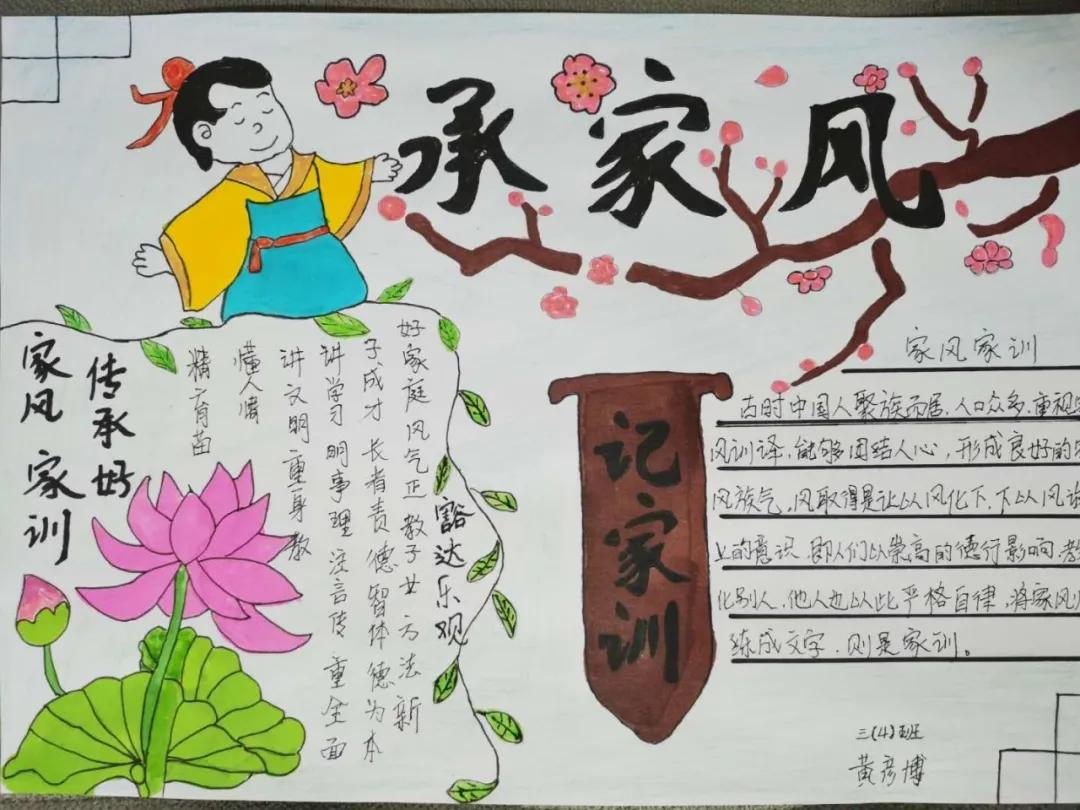 承家风
传承好
家风家训
好家庭风气正 教子女方法新
子成才 长者责 德智体德为本
讲学习 明事理 注言传 重全面
讲文明 重身教
懂人情
精育苗
豁达乐观
记家训
家风家训
古时中国人聚族而居，人口众多，重视
风训译，能够团结人心，形成良好的
风族气，风取得是让以风化下，下以风
上的意识，即人们以崇高的德行影响，教
化别人，他人也以此严格自律，将家风
练成文字，则是家训。
三(4)班
黄彦博